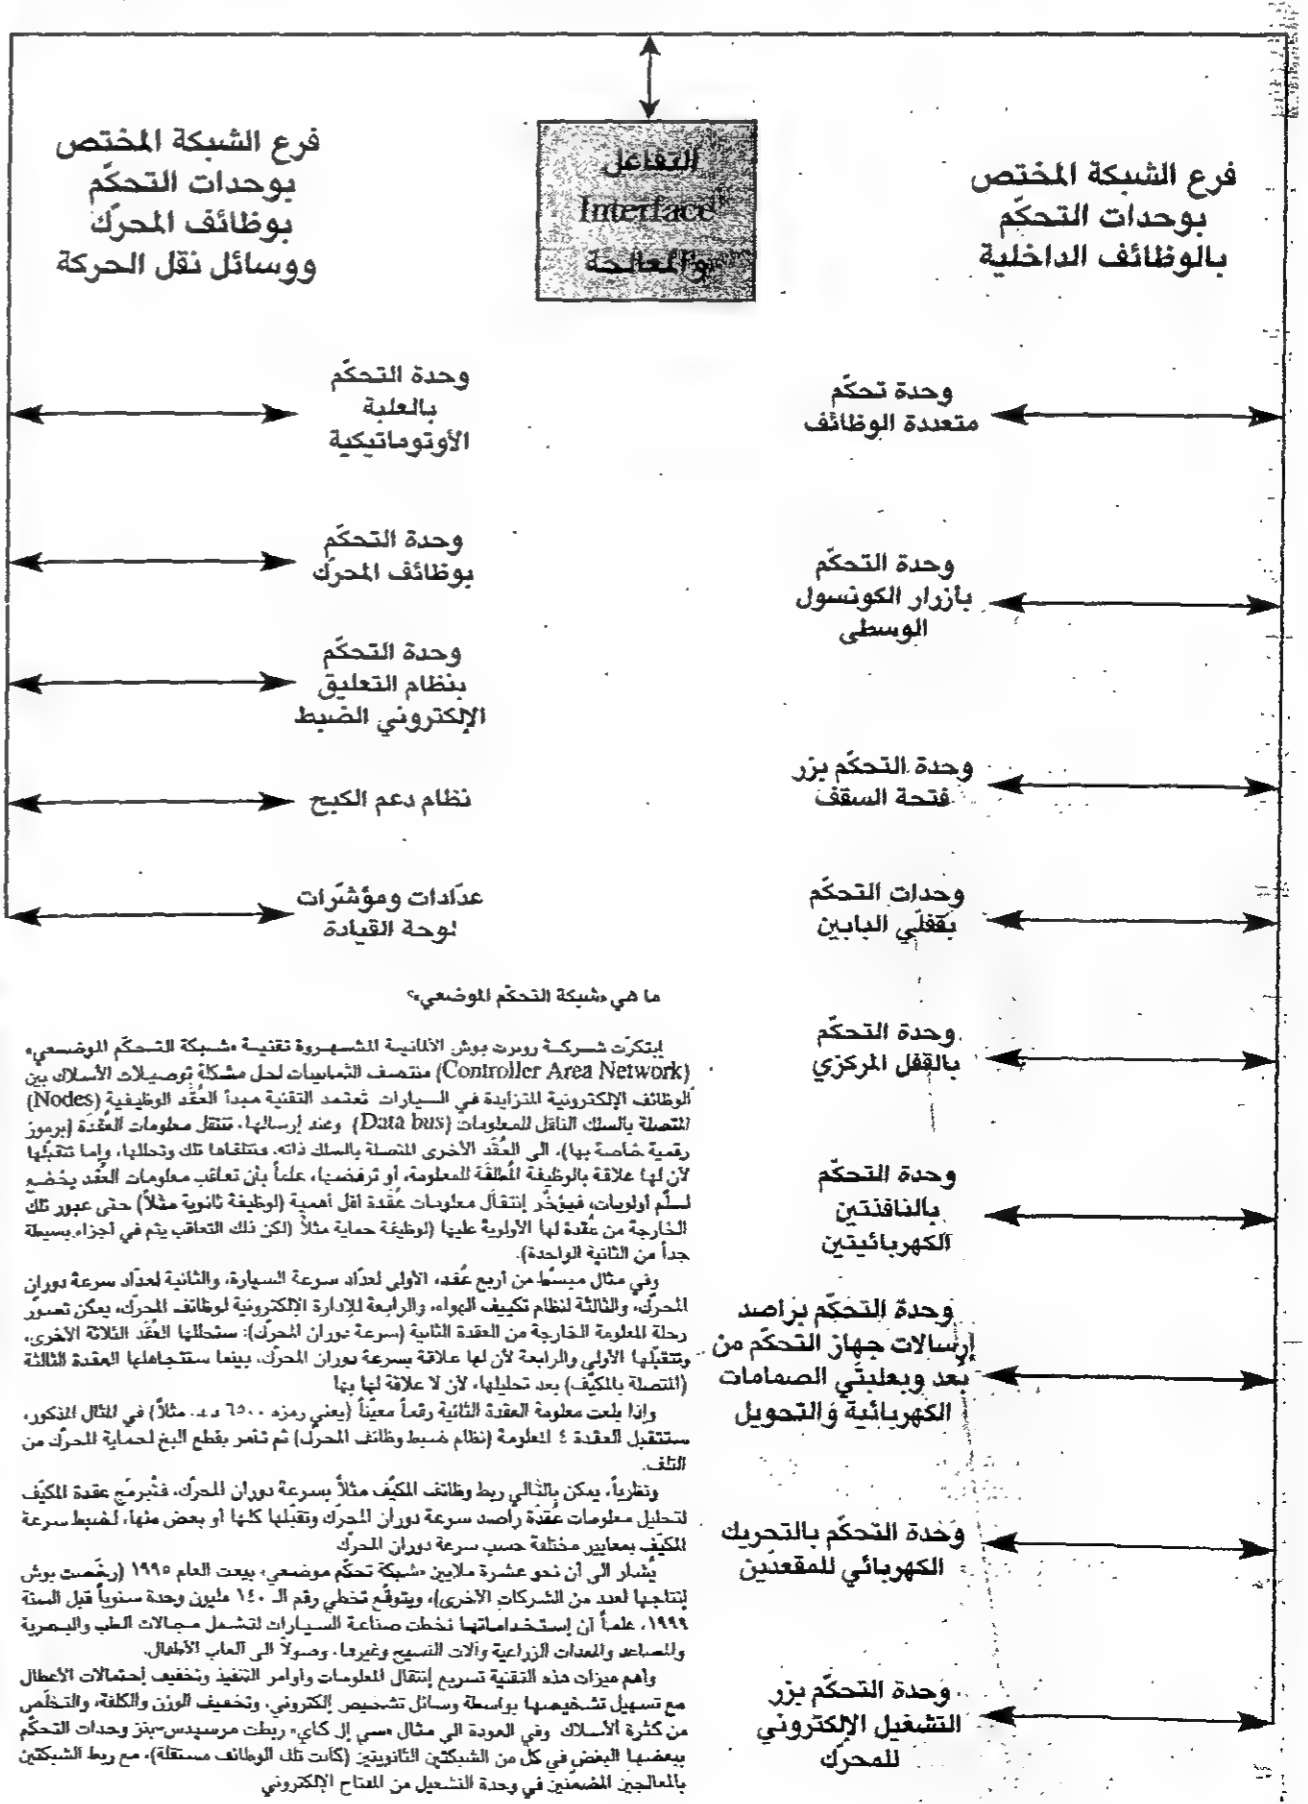 فرع الشبكة المختص
بوحدات التحكّم
بالوظائف الداخلية
التفاعل
Interface
والمعالجة
فرع الشبكة المختص
بوحدات التحكّم
بوظائف المحرّك
ووسائل نقل الحركة
وحدة تحكّم
متعددة الوظائف
وحدة التحكّم
بأزرار الكونسول
الوسطى
وحدة التحكّم بزر
فتحة السقف
وحدات التحكّم
بقفلَي البابين
وحدة التحكّم
بالقفل المركزي
وحدة التحكّم
بالنافذتين
الكهربائيتين
وحدة التحكّم براصد
إرسالات جهاز التحكّم من
بُعد وبعلبتَي الصمامات
الكهربائية والتحويل
وحدة التحكّم بالتحريك
الكهربائي للمقعدَين
وحدة التحكّم بزر
التشغيل الإلكتروني
للمحرّك
وحدة التحكّم
بالعلبة
الأوتوماتيكية
وحدة التحكّم
بوظائف المحرّك
وحدة التحكّم
بنظام التعليق
الإلكتروني الضبط
نظام دعم الكبح
عدّادات ومؤشّرات
لوحة القيادة
ما هي «شبكة التحكّم الموضعي»؟
إبتكرت شركة روبرت بوش الألمانية المشهورة تقنية «شبكة التحكّم الموضعي»
(Controller Area Network) منتصف الثمانينات لحل مشكلة توصيلات الأسلاك بين
الوظائف الإلكترونية المتزايدة في السيارات تعتمد التقنية مبدأ العُقَد الوظيفية (Nodes)
المتصلة بالسلك الناقل للمعلومات (Data bus) وعند إرسالها، تنتقل معلومات العقدة (برموز
رقمية خاصة بها)، الى العُقَد الأخرى المتصلة بالسلك ذاته، فتتلقاها تلك وتحللها، وإما تتقبّلها
لأن لها علاقة بالوظيفة المُطلقة للمعلومة، أو ترفضها، علماً بأن تعاقب معلومات العُقَد يخضع
لسلّم أولويات، فيؤخّر إنتقال معلومات عُقدة أقل أهمية (لوظيفة ثانوية مثلاً) حتى عبور تلك
الخارجة من عُقدة لها الأولوية عليها (لوظيفة حماية مثلاً (لكن ذلك التعاقب يتم في أجزاء بسيطة
جداً من الثانية الواحدة).
وفي مثال مبسّط من أربع عُقَد، الأولى لعدّاد سرعة السيارة، والثانية لعدّاد سرعة دوران
المحرّك، والثالثة لنظام تكييف الهواء، والرابعة للإدارة الالكترونية لوظائف المحرّك، يمكن تصوّر
رحلة المعلومة الخارجة من العقدة الثانية (سرعة دوران المحرّك): ستحللها العُقَد الثلاثة الأخرى،
وتتقبّلها الأولى والرابعة لأن لها علاقة بسرعة دوران المحرّك، بينما ستتجاهلها العقدة الثالثة
(المتصلة بالمكيّف) بعد تحليلها، لأن لا علاقة لها بها
وإذا بلغت معلومة العقدة الثانية رقماً معيّناً (يعني رمزه ٦٥٠٠ د.د. مثلاً) في المثال المذكور،
ستتقبل العقدة ٤ المعلومة (نظام ضبط وظائف المحرّك) ثم تأمر بقطع البخ لحماية المحرّك من
التلف.
ونظرياً، يمكن بالتالي ربط وظائف المكيّف مثلاً بسرعة دوران المحرّك، فتُبرمَج عقدة المكيّف
لتحليل معلومات عُقدة راصد سرعة دوران المحرّك وتقبّلها كلها أو بعض منها، لضبط سرعة
المكيّف بمعايير مختلفة حسب سرعة دوران المحرّك
يُشار الى أن نحو عشرة ملايين «شبكة تحكّم موضعي» بيعت العام ١٩٩٥ (رخّصت بوش
إنتاجها لعدد من الشركات الأخرى)، ويتوقّع تخطي رقم الـ ١٤٠ مليون وحدة سنوياً قبل السنة
١٩٩٩، علماً أن إستخداماتها تخطت صناعة السيارات لتشمل مجالات الطب والبصرية
والمصاعد والمعدات الزراعية وآلات النسيج وغيرها، وصولاً الى ألعاب الأطفال.
وأهم ميزات هذه التقنية تسريع إنتقال المعلومات وأوامر التنفيذ وتخفيف إحتمالات الأعطال
مع تسهيل تشخيصها بواسطة وسائل تشخيص إلكتروني، وتخفيف الوزن والكلفة، والتخلّص
من كثرة الأسلاك وفي العودة الى مثال «سي إل كاي» ربطت مرسيدس-بنز وحدات التحكّم
ببعضها البعض في كل من الشبكتين الثانويتين (كانت تلك الوظائف مستقلة)، مع ربط الشبكتين
بالمعالجين المضمّنين في وحدة التشغيل من المفتاح الإلكتروني